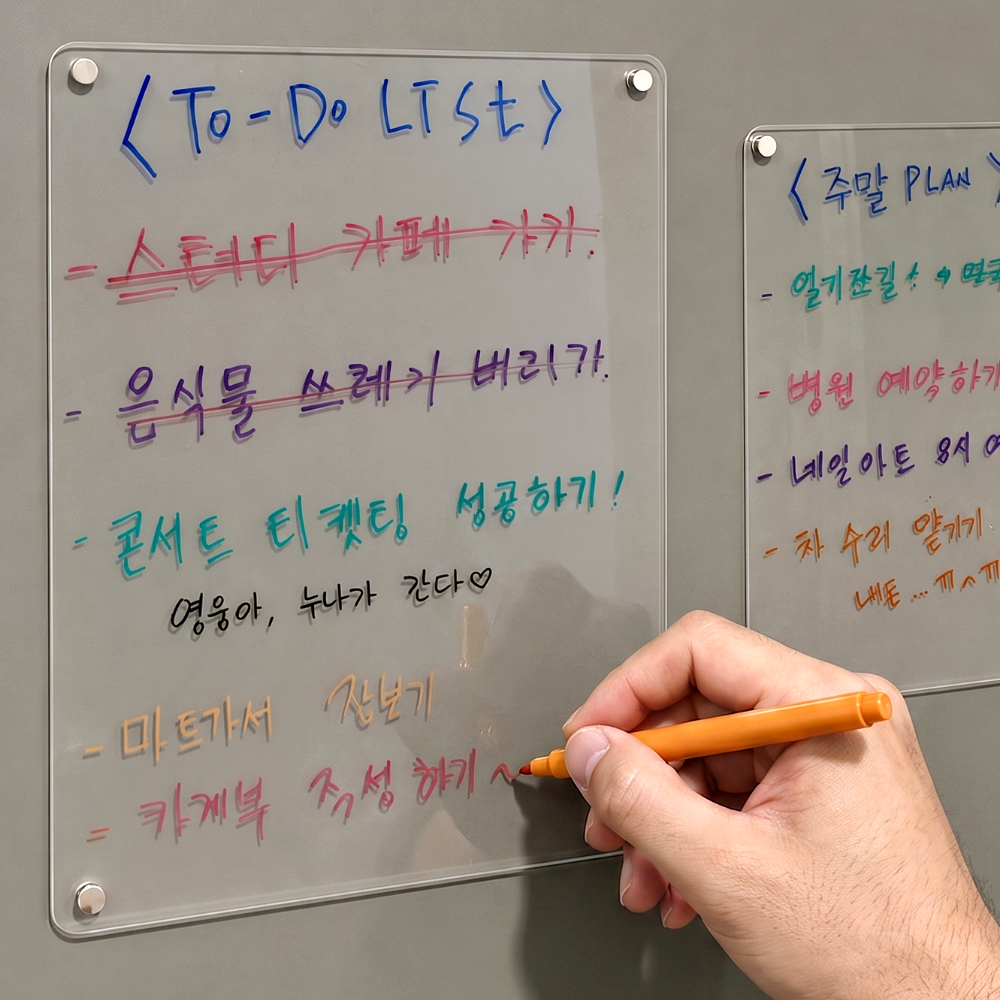 <To-Do LIst>
- 스터디 카페 가기.
- 음식물 쓰레기 버리기.
- 콘서트 티켓팅 성공하기!
영웅아, 누나가 간다♡
- 마트가서 장보기
- 가계부 작성 하기~
<주말 PLAN>
-
- 병원 예약하기
- 네일아트 8시
- 차 수리 맡기기
내돈... ㅠㅅㅠ